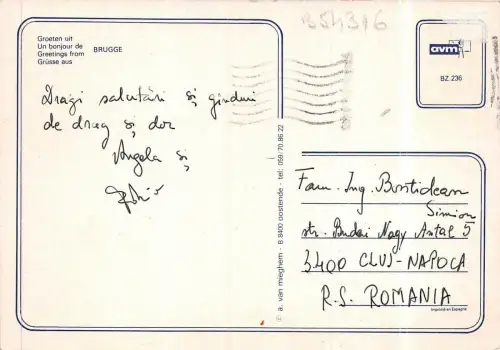 B54316
Groeten uit
Un bonjour de
Greetings from
Grüsse aus
BRUGGE
avm
BZ. 236
Dragi salutări și gînduri
de drag și dor
Angela și
© a. van mieghem - B 8400 oostende - tel: 059/70.86.22
Fam. Ing. Bostidean
Simion
str. Budai Nagy Antal 5
3400 CLUJ-NAPOCA
R.S. ROMANIA
Imprimé en Espagne